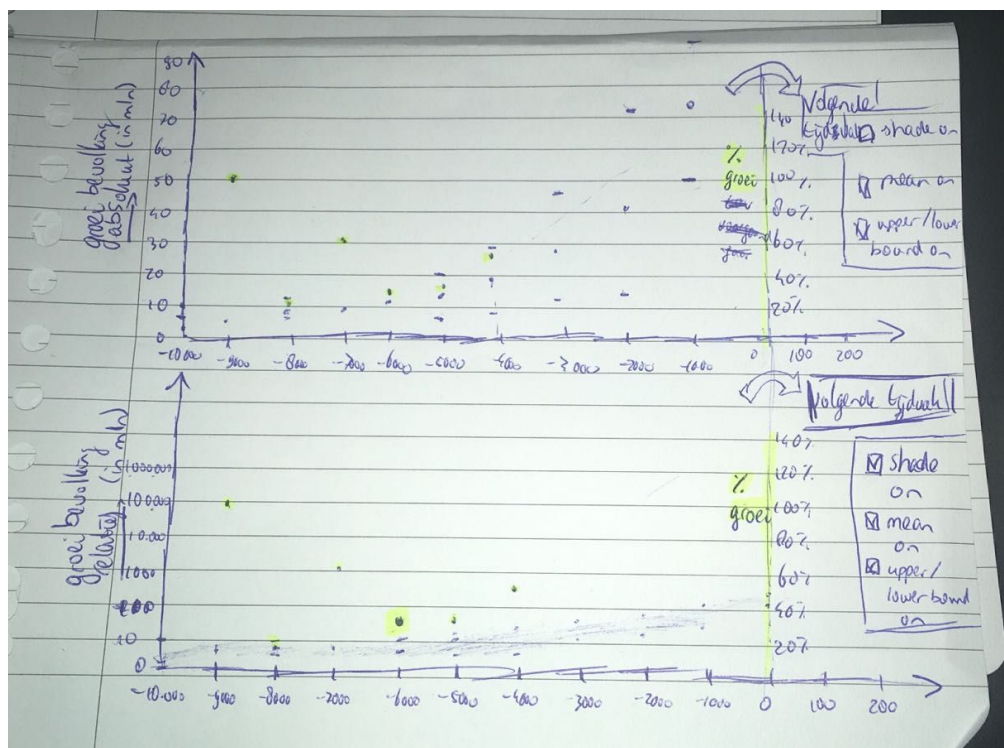 groei bevolking
absoluut (in mln)
80
60
70
60
50
40
30
20
10
0
-10000
-9000
-8000
-7000
-6000
-5000
-4000
-3000
-2000
-1000
0
100
200
%
groei
140
120%
100%
80%
60%
40%
20%
Volgende
tijdvak
shade on
mean on
upper/lower
bound on
groei bevolking
relatief (in mln)
100000
10000
1000
10
0
-10.000
-9000
-8000
-7000
-6000
-5000
-4000
-3000
-2000
-1000
0
100
200
%
groei
140%
120%
100%
80%
60%
40%
20%
Volgende tijdvak
shade
on
mean
on
upper/
lower bound
on